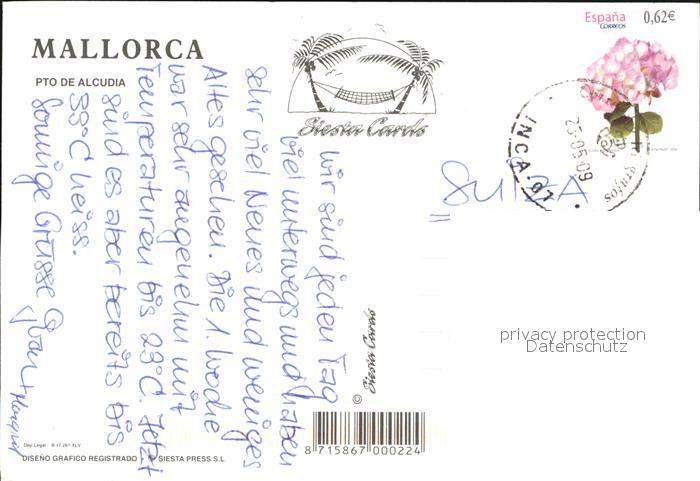 MALLORCA
PTO DE ALCUDIA
Siesta Cards
España
CORREOS
0,62€
INCA.07
25-05-09
SUIZA
wir sind jeden Tag
viel unterwegs und haben
sehr viel Neues und weniges
Altes gesehen. Die 1. Woche
war sehr angenehm mit
Temperaturen bis 23°C. Jetzt
sind es aber bereits bis
33°C heiss.
Sonnige Grüsse
© Siesta Cards
privacy protection
Datenschutz
8 715867 000224
Dep. Legal : B 17.261-XLV
DISEÑO GRAFICO REGISTRADO - © SIESTA PRESS S.L